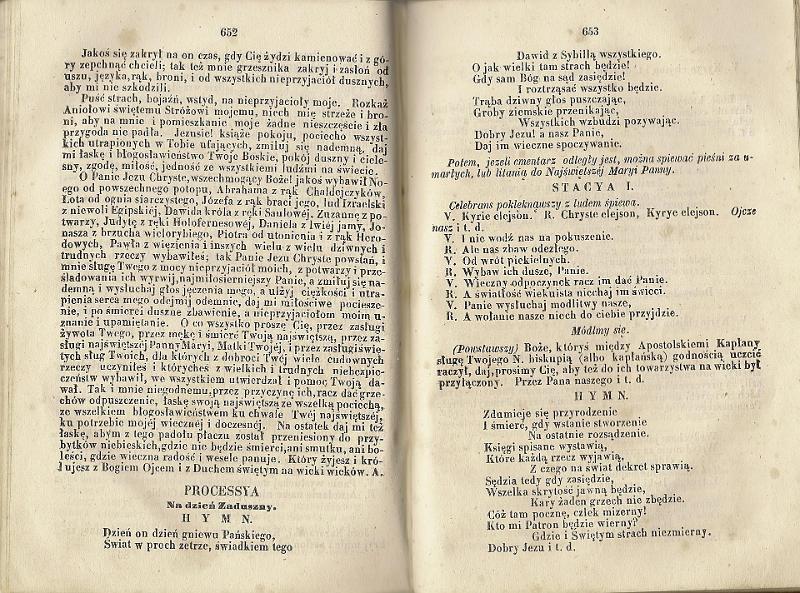 652
Jakoś się zakrył na on czas, gdy Cię żydzi kamienować i z gó-
ry zepchnąć chcieli; tak też mnie grzesznika zakryj i zasłoń od
uszu, języka, rąk, broni, i od wszystkich nieprzyjaciół dusznych,
aby mi nie szkodzili.
Puść strach, bojaźń, wstyd, na nieprzyjacioły moje. Rozkaż
Aniołowi świętemu Stróżowi mojemu, niech mię strzeże i bro-
ni, aby na mnie i pomieszkanie moje żadne nieszczęście i zła
przygoda nie padła. Jezusie! książe pokoju, pociecho wszyst-
kich utrapionych w Tobie ufających, zmiłuj się nademną, daj
mi łaskę i błogosławieństwo Twoje Boskie, pokój duszny i ciele-
sny, zgodę, miłość, jedność ze wszystkiemi ludźmi na świecie.
O Panie Jezu Chryste, wszechmogący Boże! jakoś wybawił No-
ego od powszechnego potopu, Abrahama z rąk Chaldejczyków,
Lota od ognia siarczystego, Józefa z rąk braci jego, lud Izraelski
z niewoli Egipskiej, Dawida króla z ręki Saulowéj, Zuzannę z po-
twarzy, Judytę z ręki Holofernesowéj, Daniela z lwiéj jamy, Jo-
nasza z brzucha wielorybiego, Piotra od utonienia i z rąk Hero-
dowych, Pawła z więzienia i inszych wielu z wielu dziwnych i
trudnych rzeczy wybawiłeś; tak Panie Jezu Chryste powstań, i
mnie sługę Twego z mocy nieprzyjaciół moich, z potwarzy i prze-
śladowania ich wyrwij, najmiłosierniejszy Panie, a zmiłuj się na-
demną i wysłuchaj głos jęczenia mego, a ulżyj ciężkości i utra-
pienia serca mego odejmij odemnie, daj mi miłościwe pociesze-
nie, i po śmierci duszne zbawienie, a nieprzyjaciołom moim u-
znanie i upamiętanie. O co wszystko proszę Cię, przez zasługi
żywota Twego, przez mękę i śmierć Twoją najświętszą, przez za-
sługi najświętszéj Panny Maryi, Matki Twojéj, i przez zasługi świę-
tych sług Twoich, dla których z dobroci Twéj wiele cudownych
rzeczy uczyniłeś i któryches z wielkich i trudnych niebezpie-
czeństw wybawił, we wszystkiem utwierdzał i pomoc Twoją da-
wał. Tak i mnie niegodnemu, przez przyczynę ich, racz dać grze-
chów odpuszczenie, łaskę swoją najświętszą ze wszelką pociechą,
ze wszelkiem błogosławieństwem ku chwale Twéj najświętszéj,
ku potrzebie mojéj wiecznéj i doczesnéj. Na ostatek daj mi też
łaskę, abym z tego padołu płaczu został przeniesiony do przy-
bytków niebieskich, gdzie nie będzie śmierci, ani smutku, ani bo-
leści, gdzie wieczna radość i wesele panuje. Który żyjesz i kró-
lujesz z Bogiem Ojcem i z Duchem świętym na wieki wieków. A.
PROCESSYA
Na dzień Zaduszny.
HYMN.
Dzień on dzień gniewu Pańskiego,
Świat w proch zetrze, świadkiem tego
653
Dawid z Sybillą wszystkiego.
O jak wielki tam strach będzie!
Gdy sam Bóg na sąd zasiędzie!
I roztrząsać wszystko będzie.
Trąba dziwny głos puszczając,
Groby ziemskie przenikając,
Wszystkich wzbudzi pozywając.
Dobry Jezu! a nasz Panie,
Daj im wieczne spoczywanie.
Potem, jeżeli cmentarz odległy jest, można śpiewać pieśni za u-
marłych, lub litanią do Najświętszej Maryi Panny.
STACYA I.
Celebrans poklęknąwszy z ludem śpiewa.
V. Kyrie elejson. R. Chryste elejson, Kyrye elejson. Ojcze
nasz i t. d.
V. I nie wódź nas na pokuszenie.
R. Ale nas zbaw odezłego.
V. Od wrót piekielnych.
R. Wybaw ich dusze, Panie.
V. Wieczny odpoczynek racz im dać Panie.
R. A światłość wiekuista niechaj im świeci.
V. Panie wysłuchaj modlitwy nasze,
R. A wołanie nasze niech do ciebie przyjdzie.
Módlmy się.
(Powstawszy) Boże, któryś między Apostolskiemi Kapłany
sługę Twojego N. biskupią (albo kapłańską) godnością uczcić
raczył, daj, prosimy Cię, aby też do ich towarzystwa na wieki był
przyłączony. Przez Pana naszego i t. d.
HYMN.
Zdumieje się przyrodzenie
I śmierć, gdy wstanie stworzenie
Na ostatnie rozsądzenie.
Księgi spisane wystawią,
Które każdą rzecz wyjawią,
Z czego na świat dekret sprawią.
Sędzia tedy gdy zasiędzie,
Wszelka skrytość jawną będzie,
Kary żaden grzech nie zbędzie.
Cóż tam pocznę, człek mizerny!
Kto mi Patron będzie wierny?
Gdzie i Świętym strach niezmierny.
Dobry Jezu i t. d.